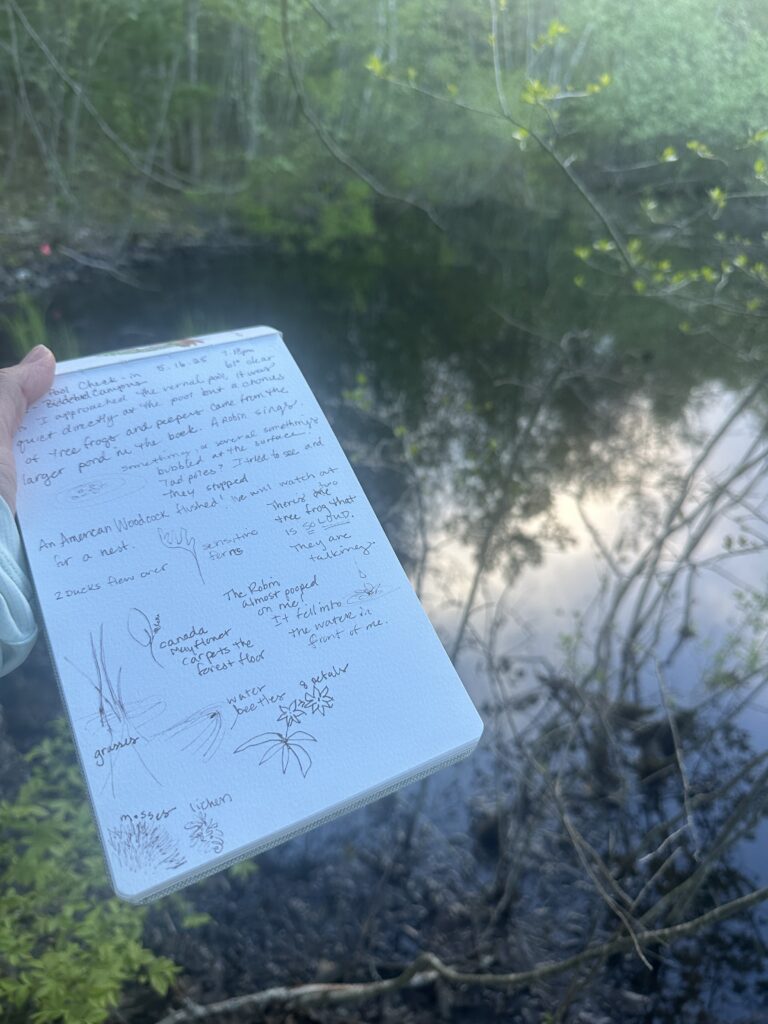 Pool Check-in 5.16.25 7:18pm
Biddeford Campus 61° clear
I approached the vernal pool, it was
quiet directly at the pool but a chorus
of tree frogs and peepers came from the
larger pond in the back. A Robin sings.
Something, or several somethings
bubbled at the surface.
Tadpoles? I tried to see and
they stopped
An American Woodcock flushed! We will watch out
for a nest.
sensitive
ferns
There's one
tree frog that
is so LOUD.
They are
talking.
2 Ducks flew over
The Robin
almost pooped
on me!
It fell into
the water in
front of me.
canada
mayflower
carpets the
forest floor
grasses
water
beetles
8 petals
mosses
lichen